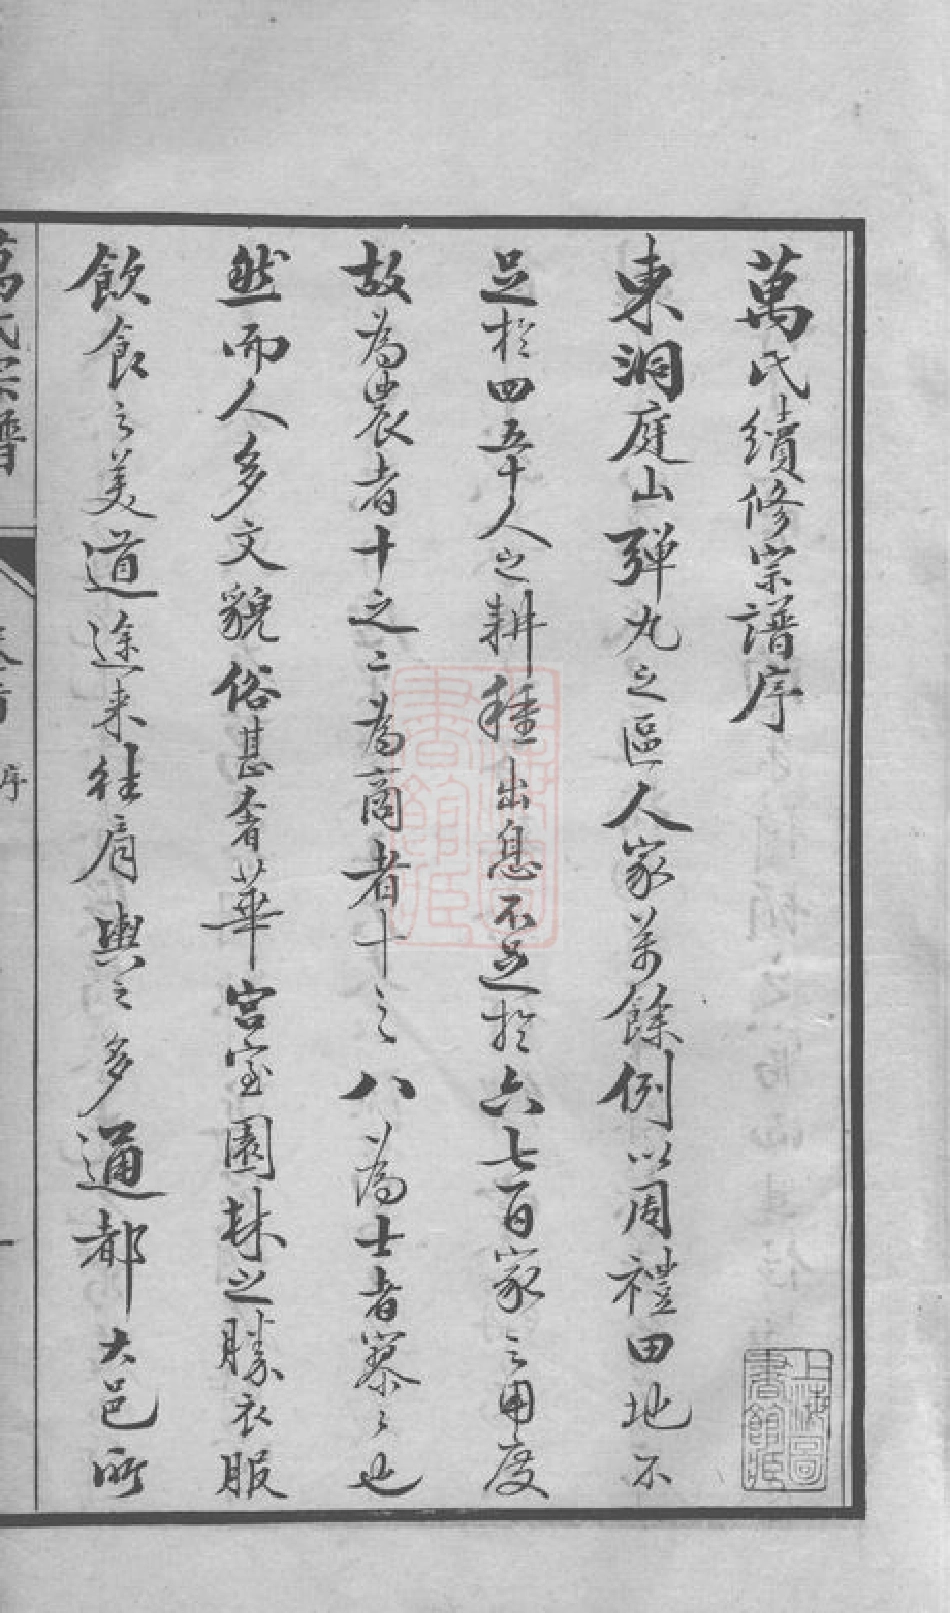 萬氏續修宗譜序
東洞庭山彈丸之區人家萬餘例以周禮田地不
足於四五十人之耕種出息不足於六七百家之用度
故為農者十之二為商者十之八為士者寥之也
然而人多文貌俗甚奢華宮室園林之勝衣服
飲食之美道途来往肩輿之多通都大邑所
萬氏宗譜
卷首
序
一
上海圖書館藏
上海圖書館藏